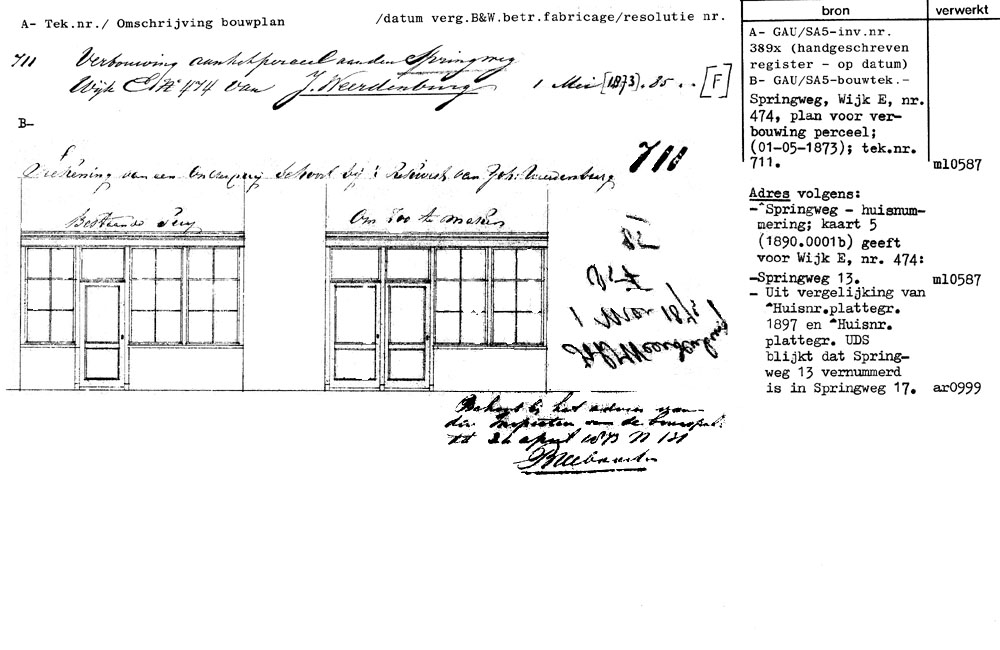 A- Tek.nr./ Omschrijving bouwplan
/datum verg.B&W.betr.fabricage/resolutie nr.
711 Verbouwing aan het perceel aan den Springweg
Wijk E No 474 van J. Weerdenburg 1 Mei [1873]. 85 .. [F]
B-
711
Teekening van een schoort bij: van Joh: Weerdenburg
Bestaande Puy
Om Zoo te maken
82
1 Mei 1873
Behoort bij het advies van
den Inspecteur van de bouwpol:
dd 26 april 1873 N 131
bron
verwerkt
A- GAU/SA5-inv.nr.
389x (handgeschreven
register - op datum)
B- GAU/SA5-bouwtek.-
Springweg, Wijk E, nr.
474, plan voor ver-
bouwing perceel;
(01-05-1873); tek.nr.
711.
ml0587
Adres volgens:
-^Springweg - huisnum-
mering; kaart 5
(1890.0001b) geeft
voor Wijk E, nr. 474:
-Springweg 13.
ml0587
- Uit vergelijking van
^Huisnr.plattegr.
1897 en ^Huisnr.
plattegr. UDS
blijkt dat Spring-
weg 13 vernummerd
is in Springweg 17.
ar0999